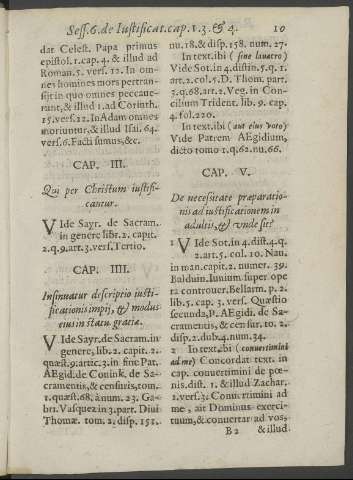 Sess. 6. de Iustificat. cap. 1. 3. & 4. 10
dat Celest. Papa primus
epistol. 1. cap. 4. & illud ad
Roman. 5. vers. 12. In om-
nes homines mors pertran-
sijt in quo omnes peccaue-
rant, & illud 1. ad Corinth.
15. vers. 22. In Adam omnes
moriuntur, & illud Isai. 64.
vers. 6. Facti sumus, &c.
CAP. III.
Qui per Christum iustifi-
cantur.
VIde Sayr. de Sacram.
in genere libr. 2. capit.
2. q. 9. art. 3. vers. Tertio.
CAP. IIII.
Insinuatur descriptio iusti-
ficationis impij, & modus
eius in statu gratiæ.
VIde Sayr. de Sacram. in
genere, lib. 2. capit. 2.
quæst. 9. artic. 3. in fine Pat.
AEgid. de Conink. de Sa-
cramentis, & censuris, tom.
1. quæst. 68. à num. 23. Ga-
br. Vasquez in 3. part. Diui
Thomæ. tom. 2. disp. 151.
nu. 18. & disp. 158. num. 27.
In text. ibi (sine lauacro)
Vide Sot. in 4. distin. 5. q. 1.
art. 2. col. 5. D. Thom. part.
3. q. 68. art. 2. Veg. in Con-
cilium Trident. lib. 9. cap.
4. fol. 220.
In text. ibi (aut eius voto)
Vide Patrem AEgidium,
dicto tomo 1. q. 62. nu. 66.
CAP. V.
De necessitate præparatio-
nis ad iustificationem in
adultis, & unde sit?
VIde Sot. in 4. dist. 4. q.
2. art. 5. col. 10. Nau.
in man. capit. 2. numer. 39.
Balduin. Iunium super ope
ra controuer. Bellarm. p. 2.
lib. 5. cap. 3. vers. Quæstio
secunda, P. AEgidi. de Sa-
cramentis, & censur. to. 2.
disp. 2. dub. 4. num. 34.
2 In text. ibi (conuertimini
ad me) Concordat text. in
cap. conuertimini de pœ-
nis. dist. 1. & illud Zachar.
1. vers. 3. Conuertimini ad
me, ait Dominus exerci-
tuum, & conuertar ad vos,
B 2 & illud